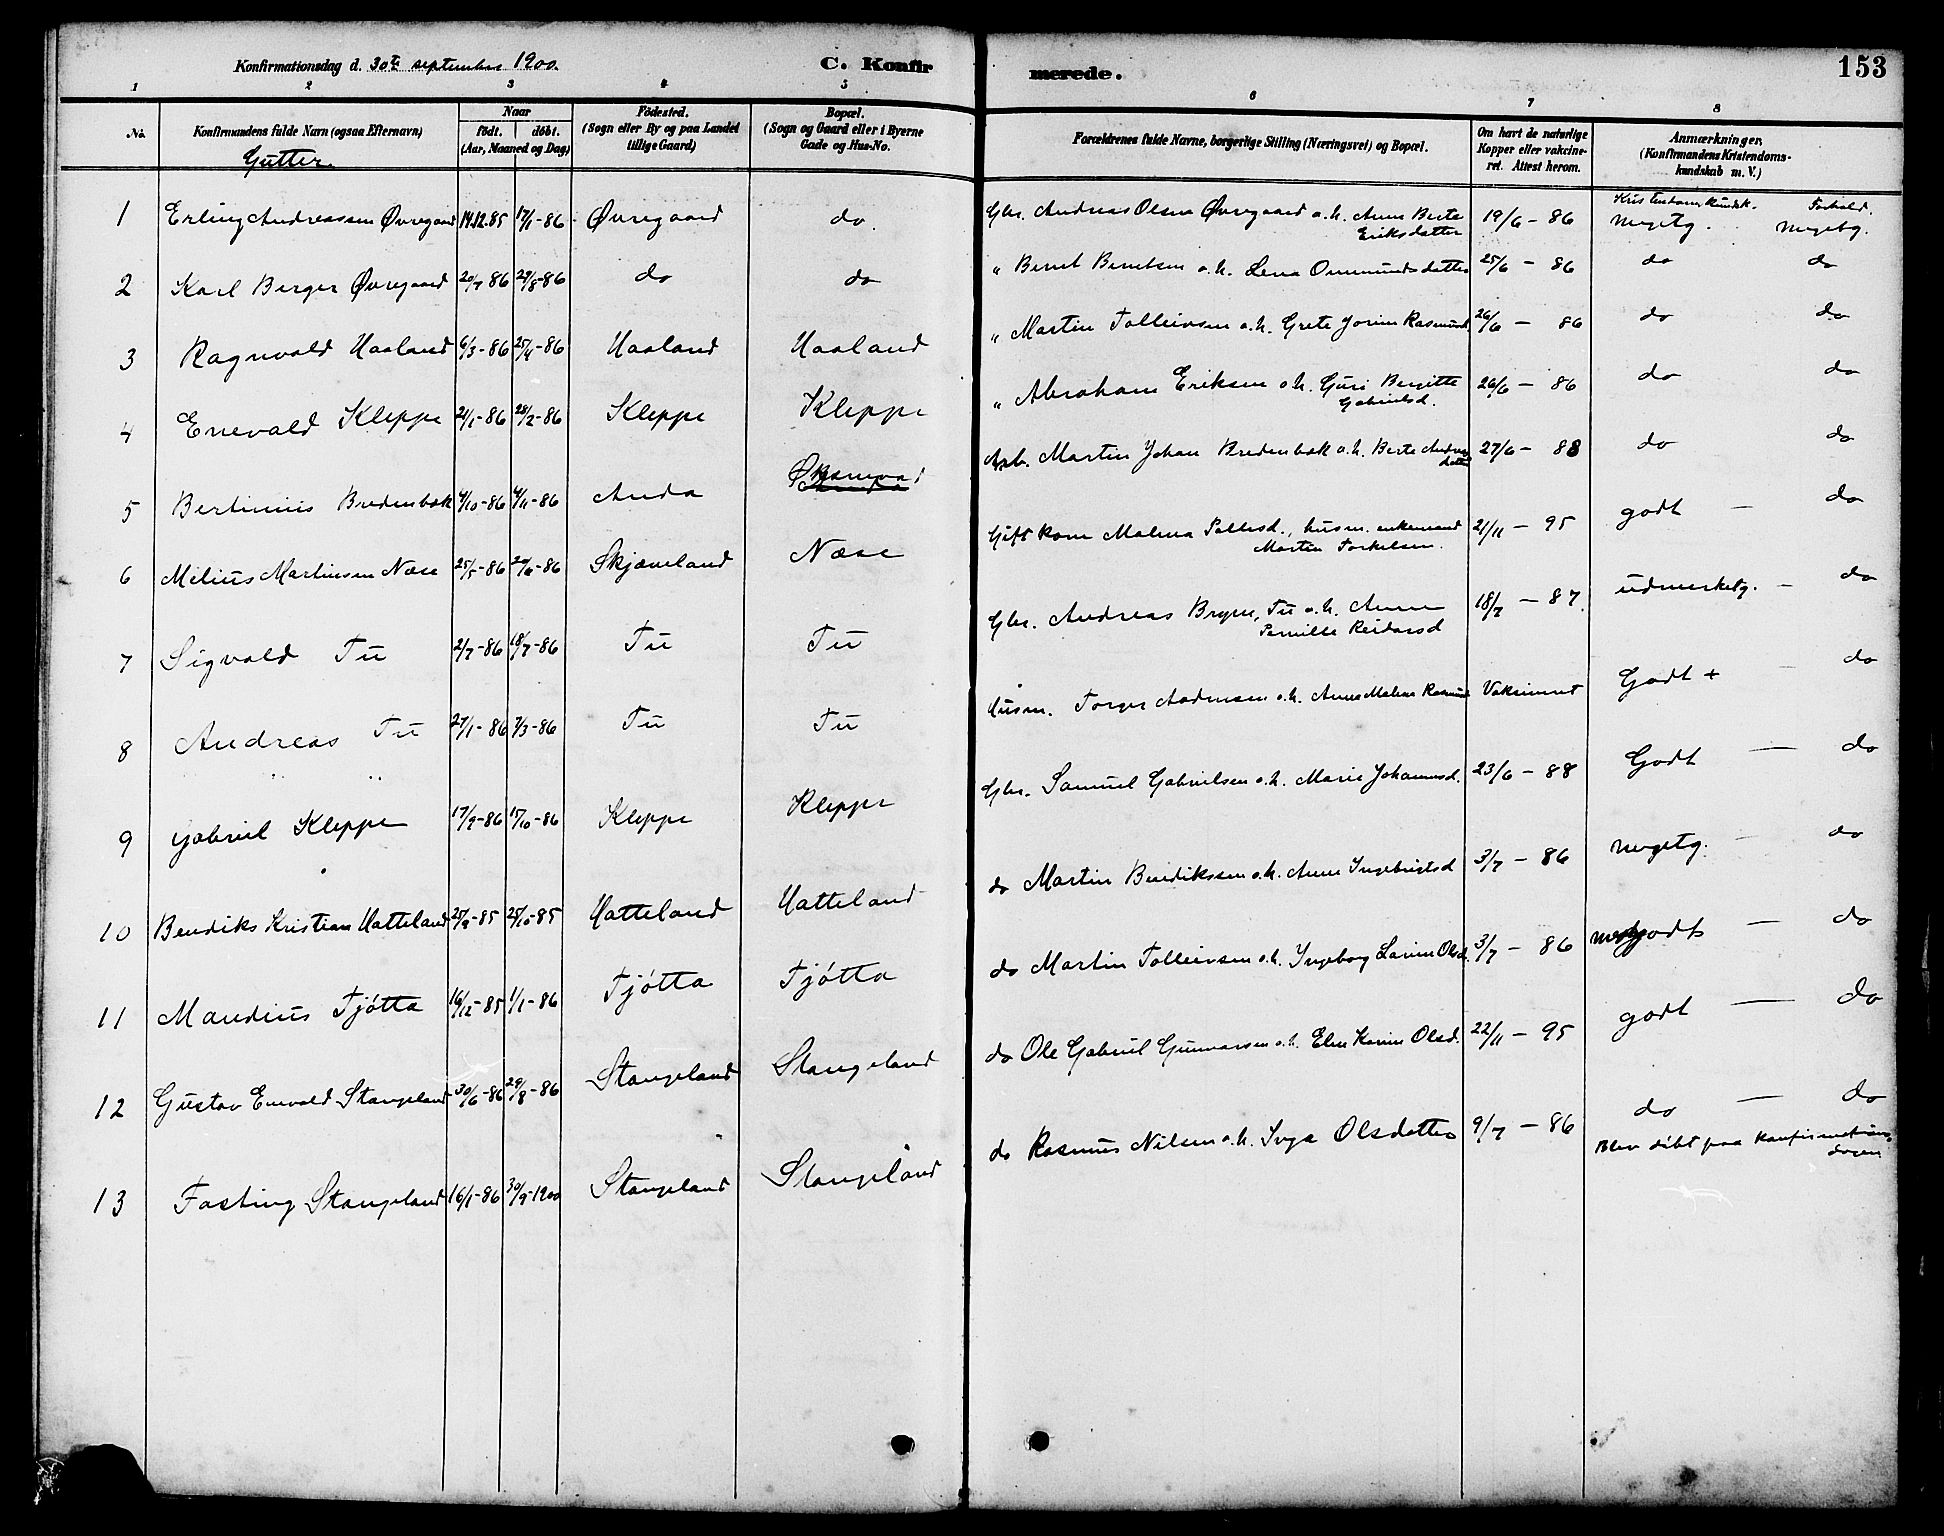 Konfirmationsdag d. 30te september 1900.
C. Konfirmerede.
153
1 2 3 4 5 6 7 8
No.
Konfirmandens fulde Navn (ogsaa Efternavn)
Naar
født. døbt.
(Aar, Maaned og Dag)
Fødested.
(Sogn eller By og paa Landet
tillige Gaard)
Bopæl.
(Sogn og Gaard eller i Byerne
Gade og Hus-No.
Forældrenes fulde Navne, borgerlige Stilling (Næringsvei) og Bopæl.
Om havt de naturlige
Kopper eller vakcine-
ret. Attest herom.
Anmærkninger.
(Konfirmandens Kristendoms-
kundskab m. V.)
Gutter.
Kristendomskundsk. Forhold.
1 Erling Andreassen Øvregaard 14.12.85 17/1-86 Øvregaard do. Gbr. Andreas Olsen Øvregaard o.h. Anne Berte Eriksdatter 19/6 - 86 megetg. megetg.
2 Karl Berger Øvregaard 20/7 86 29/8-86 do do " Bernt Berntsen o.h. Lena Ommundsdatter 25/6 - 86 do do
3 Ragnvald Haaland 6/3-86 25/4-86 Haaland Haaland " Martin Tolleivsen o.h. Grete Jorine Rasmusd. 26/6 - 86 do do
4 Enevald Kleppe 21/1-86 28/2-86 Kleppe Kleppe " Abraham Eriksen o.h. Guri Bergitte Gabrielsd. 26/6 - 86 do do
5 Bertinius Bredenbæk 4/10-86 4/11-86 Anda Øksnevad Arb. Martin Johan Bredenbæk o.h. Berte Andreasdatter 27/6 - 88 do do
6 Milius Martinsen Næse 25/5-86 Skjæveland Næse Gift kone Malena Pallesd., husm. enkemand Martin Torkelsen. 21/11 - 95 godt - do
7 Sigvald Tu 2/7-86 18/7-86 Tu Tu Gbr. Andreas Bryne, Tu o.h. Anne Pernille Reidarsd 18/7 - 87. udmerketg. - do
8 Andreas Tu 27/1-86 7/3-86 Tu Tu Husm. Torger Aadnesen o.h. Anne Malene Rasmusd Vaksineret Godt + - do
9 Gabriel Kleppe 17/9-86 17/10-86 Kleppe Kleppe Gbr. Samuel Gabrielsen o.h. Marie Johannesd. 23/6 - 88 Godt - do
10 Bendiks Kristian Hatteland 25/9-85 25/10-85 Hatteland Hatteland do Martin Bendiksen o.h. Anne Ingebrigtsd 3/7 - 86 megetg. - do
11 Mandius Tjøtta 16/12-85 1/1-86 Tjøtta Tjøtta do Martin Tolleivsen o.h. Ingeborg Lavine Olsd. 3/7 - 86 godt - do
12 Gustav Enevald Stangeland 30/6-86 29/8-86 Stangeland Stangeland do Ole Gabriel Gunnarsen o.h. Elen Karine Olsd. 22/11 - 95 godt - do
13 Fasting Stangeland 16/1-86 30/9-1900 Stangeland Stangeland do Rasmus Nilsen o.h. Inga Olsdatter 9/7 - 86 do - do
Blev døbt paa konfirmations-
dagen